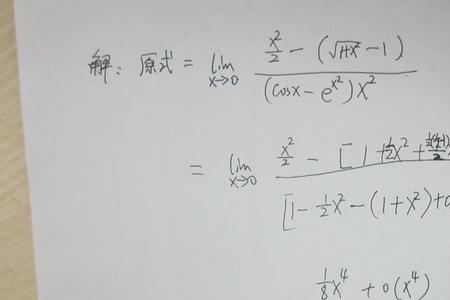 解: 原式 = lim x→0 (x²/2 − (√(1+x²) − 1)) / ((cosx − e^(x²)) x²)
= lim x→0 (x²/2 − [1 + ½x² + ½(½−1)/2 / [1 − ½x² − (1+x²) + o
⅛x⁴ + o(x⁴)